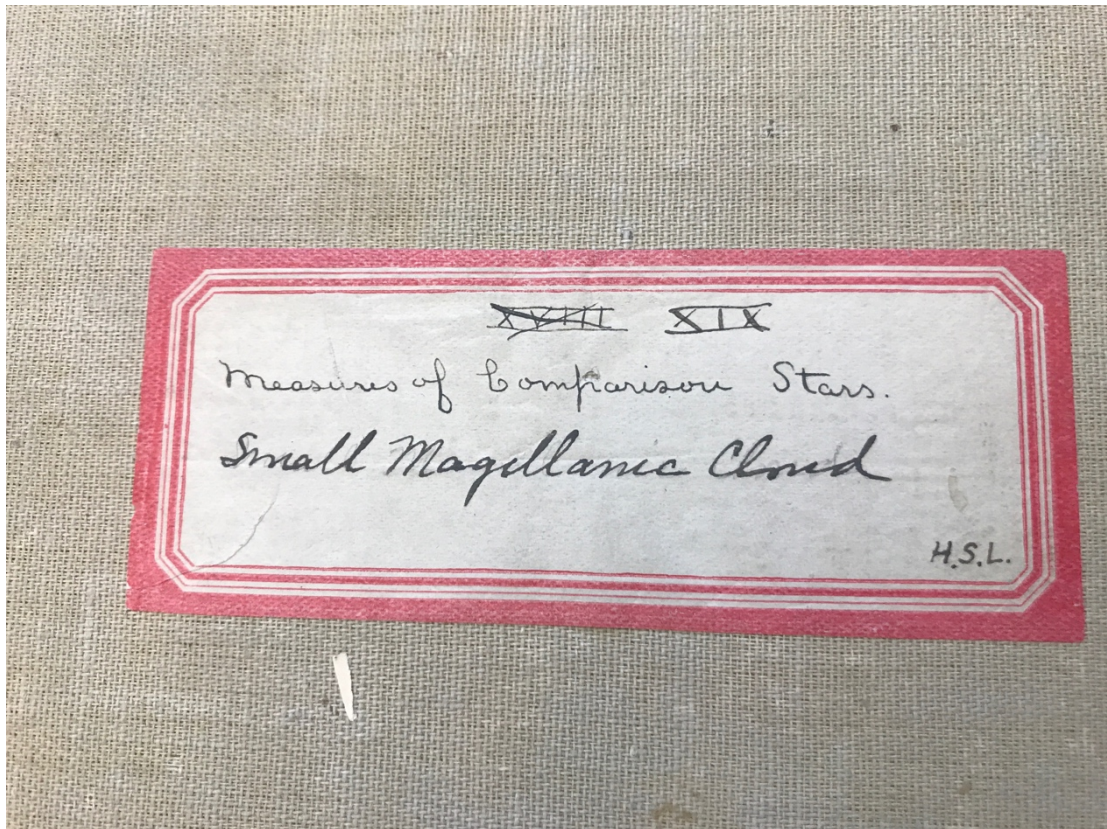 XVIII XIX
Measures of Comparison Stars.
Small Magellanic Cloud
H.S.L.